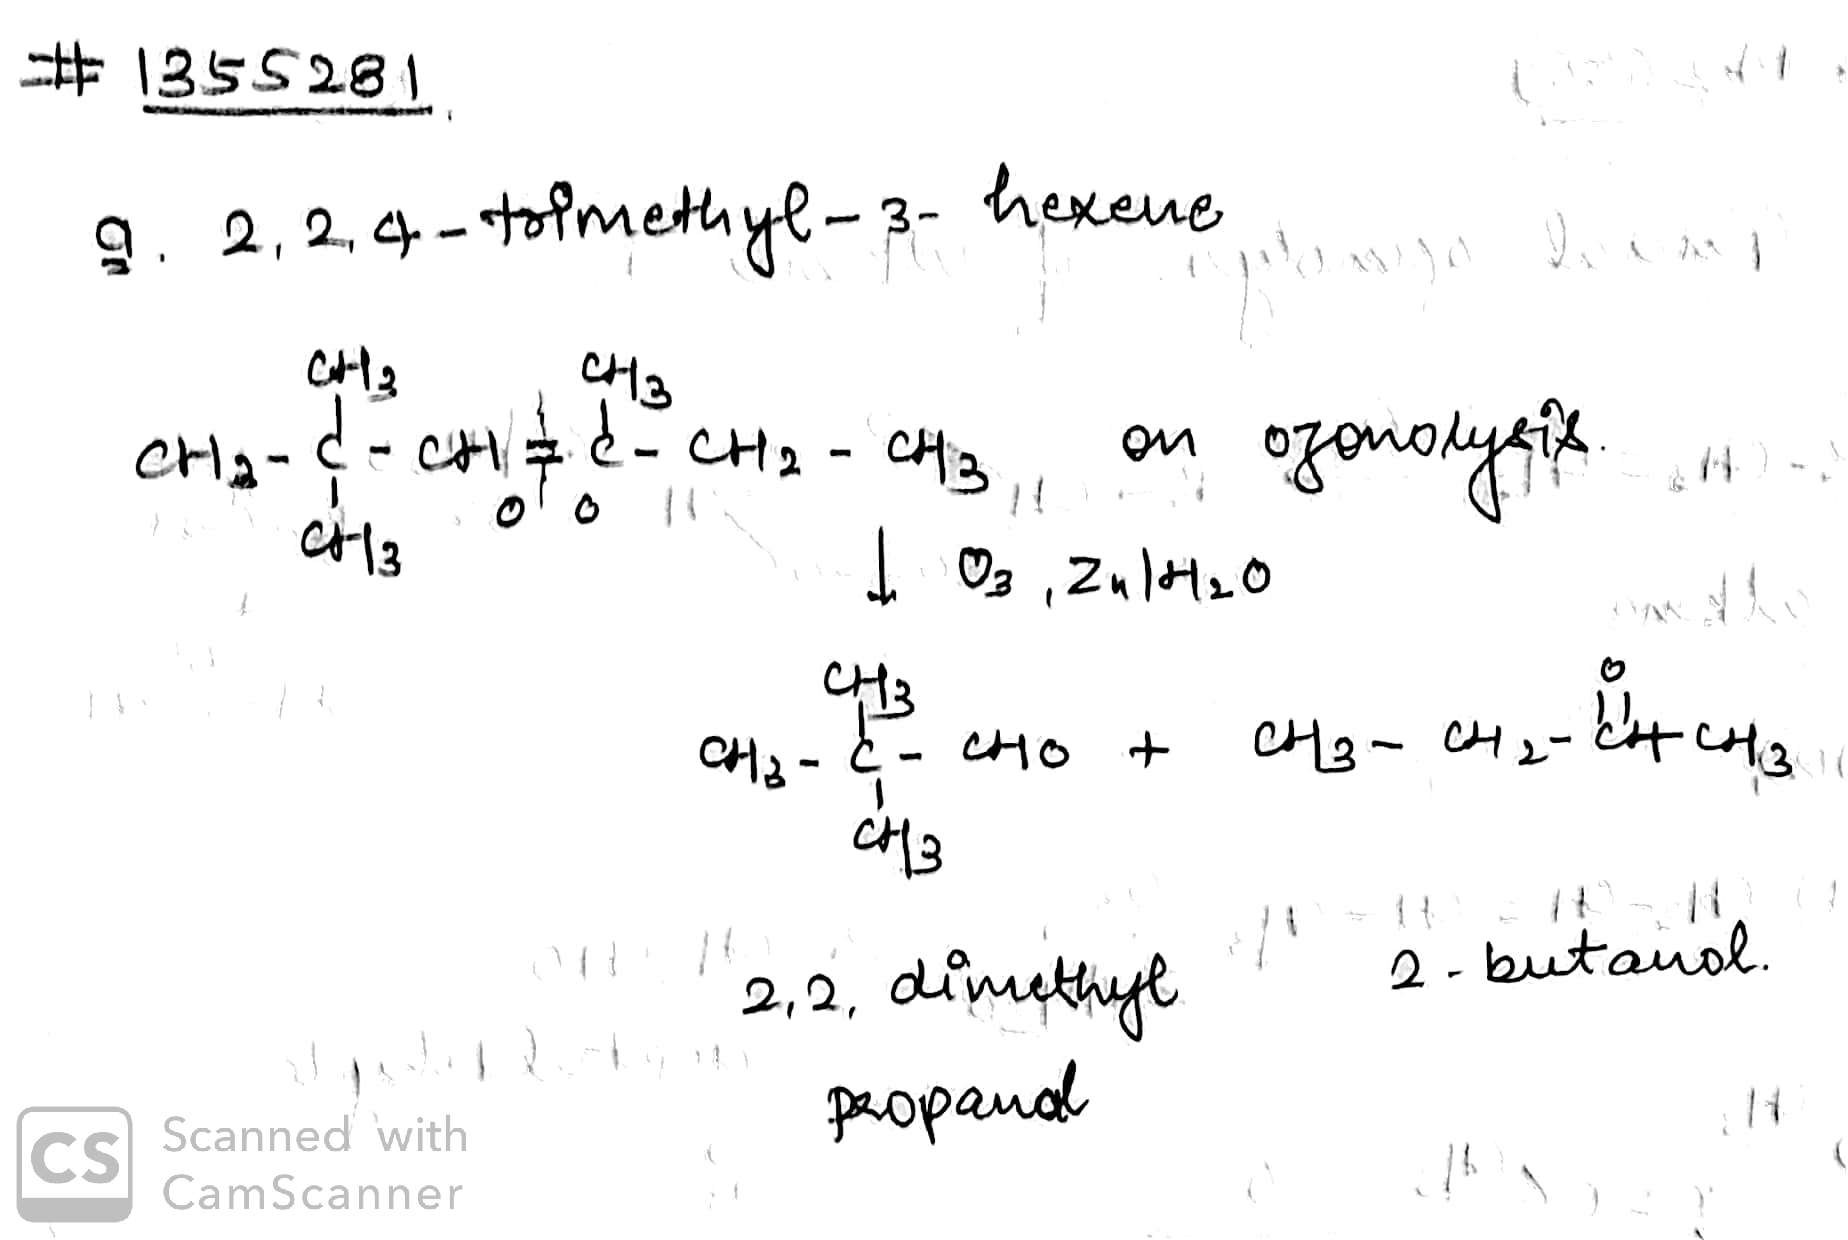 # 1355281
9. 2,2,4-trimethyl-3-hexene
CH3 CH3
CH3-C-CH=C-CH2-CH3 on ozonolysis.
CH3 O O
↓ O3, Zn/H2O
CH3 O
CH3-C-CHO + CH3-CH2-C-CH3
CH3
2,2, dimethyl 2-butanol.
propanal
CS Scanned with
CamScanner